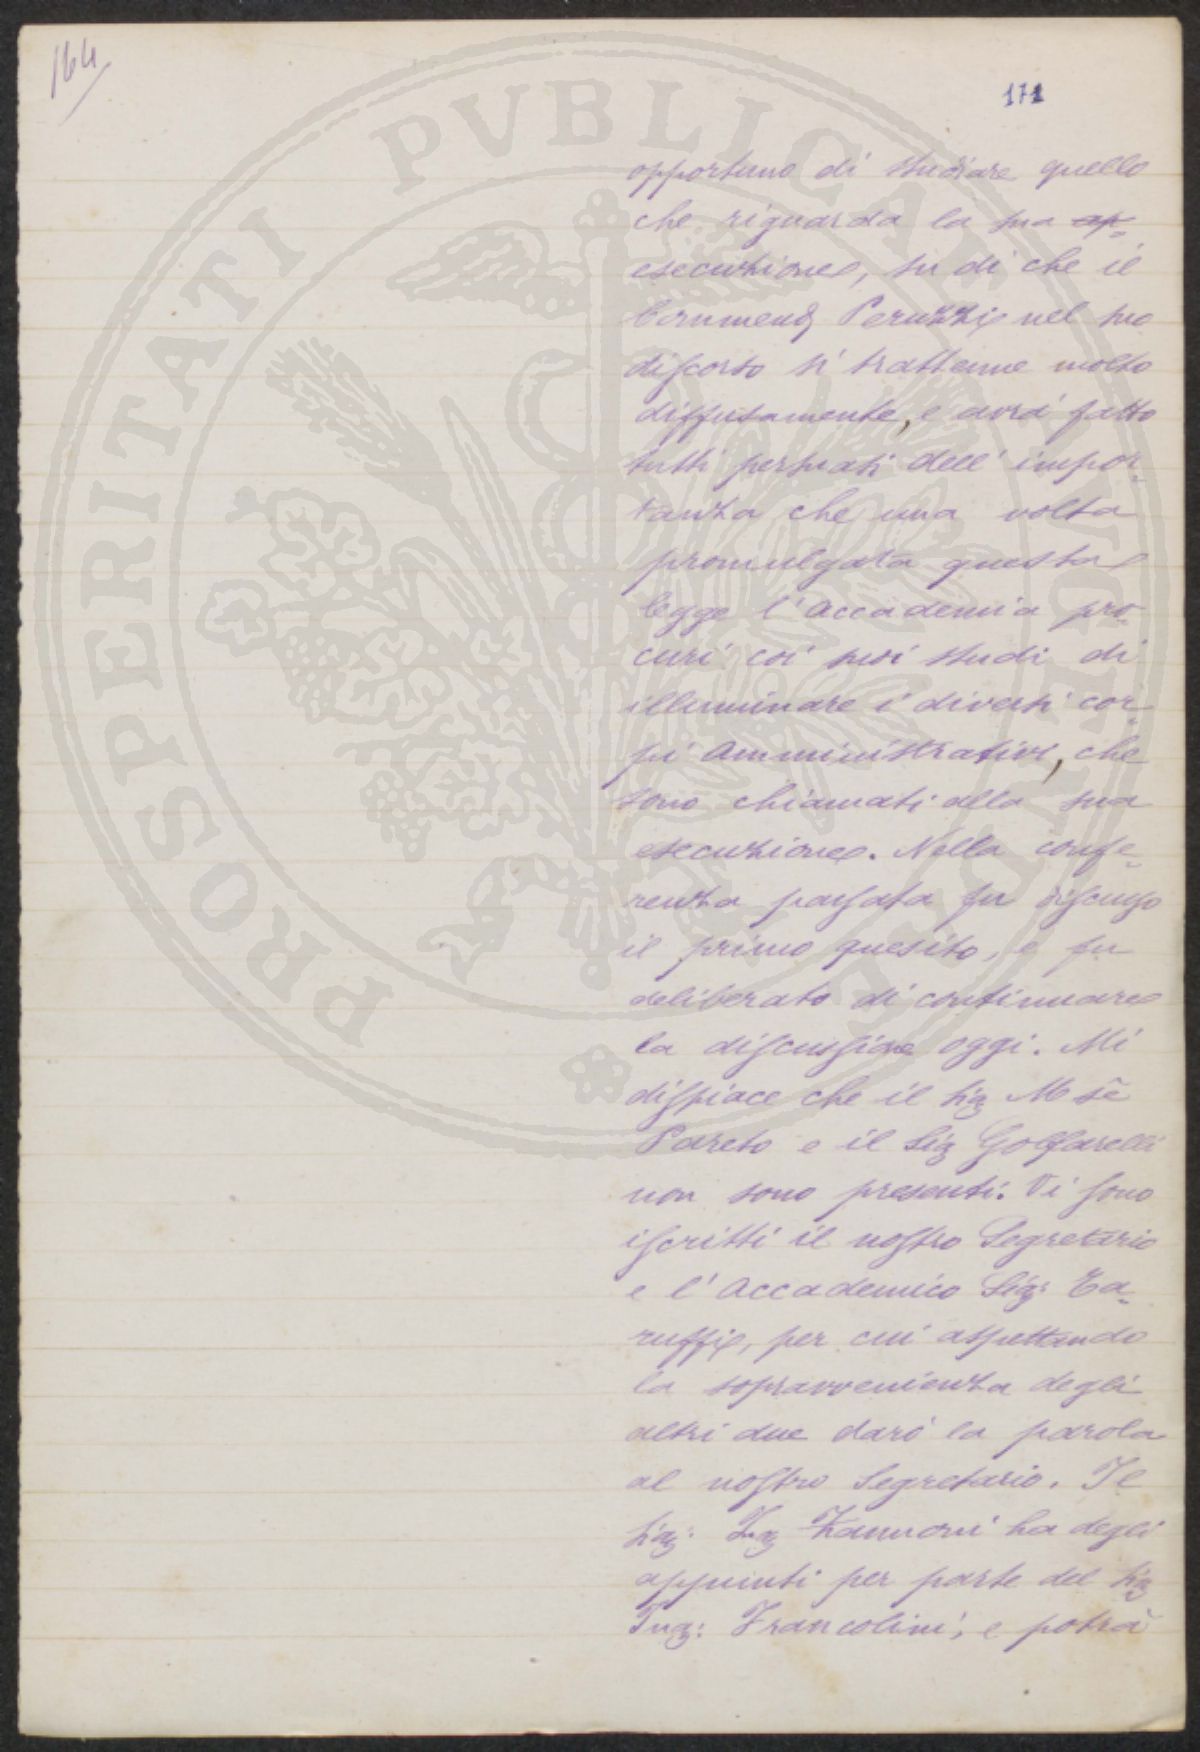 164
171
PROSPERITATI PUBLICAE AUGENDAE
opportuno di studiare quello
che riguarda la sua ap-
esecuzione, su di che il
Commend Peruzzi nel suo
discorso si trattenne molto
diffusamente, e avrà fatto
tutti persuasi dell' impor-
tanza che una volta
promulgata questa
legge l'Accademia pro-
curi coi suoi studi di
illuminare i diversi cor-
pi Amministrativi, che
sono chiamati alla sua
esecuzione. Nella confe-
renza passata fu discusso
il primo quesito, e fu
deliberato di continuare
la discussione oggi. Mi
dispiace che il Sig Mse
Pareto e il Sig Golfarelli
non sono presenti. Vi sono
iscritti il nostro Segretario
e l'Accademico Sig: Ta-
ruffi, per cui aspettando
la sopravvenienza degli
altri due darò la parola
al nostro Segretario. Il
Sig: Ing Zannoni ha degli
appunti per parte del Sig
Ing: Francolini, e potrà